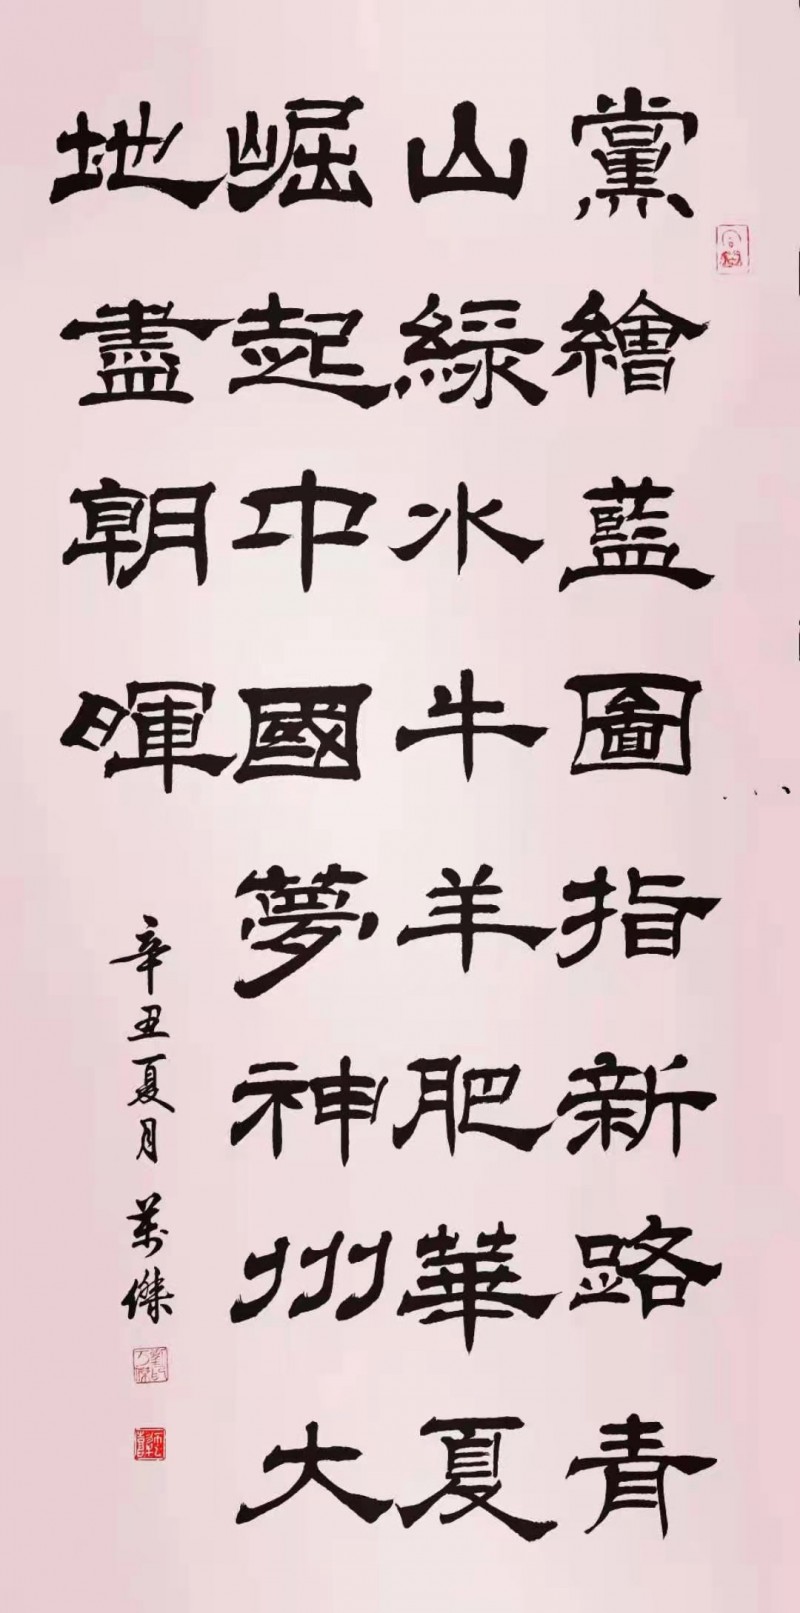 黨繪藍圖指新路青
山綠水牛羊肥華夏
崛起中國夢神州大
地盡朝暉
辛丑夏月 萬傑